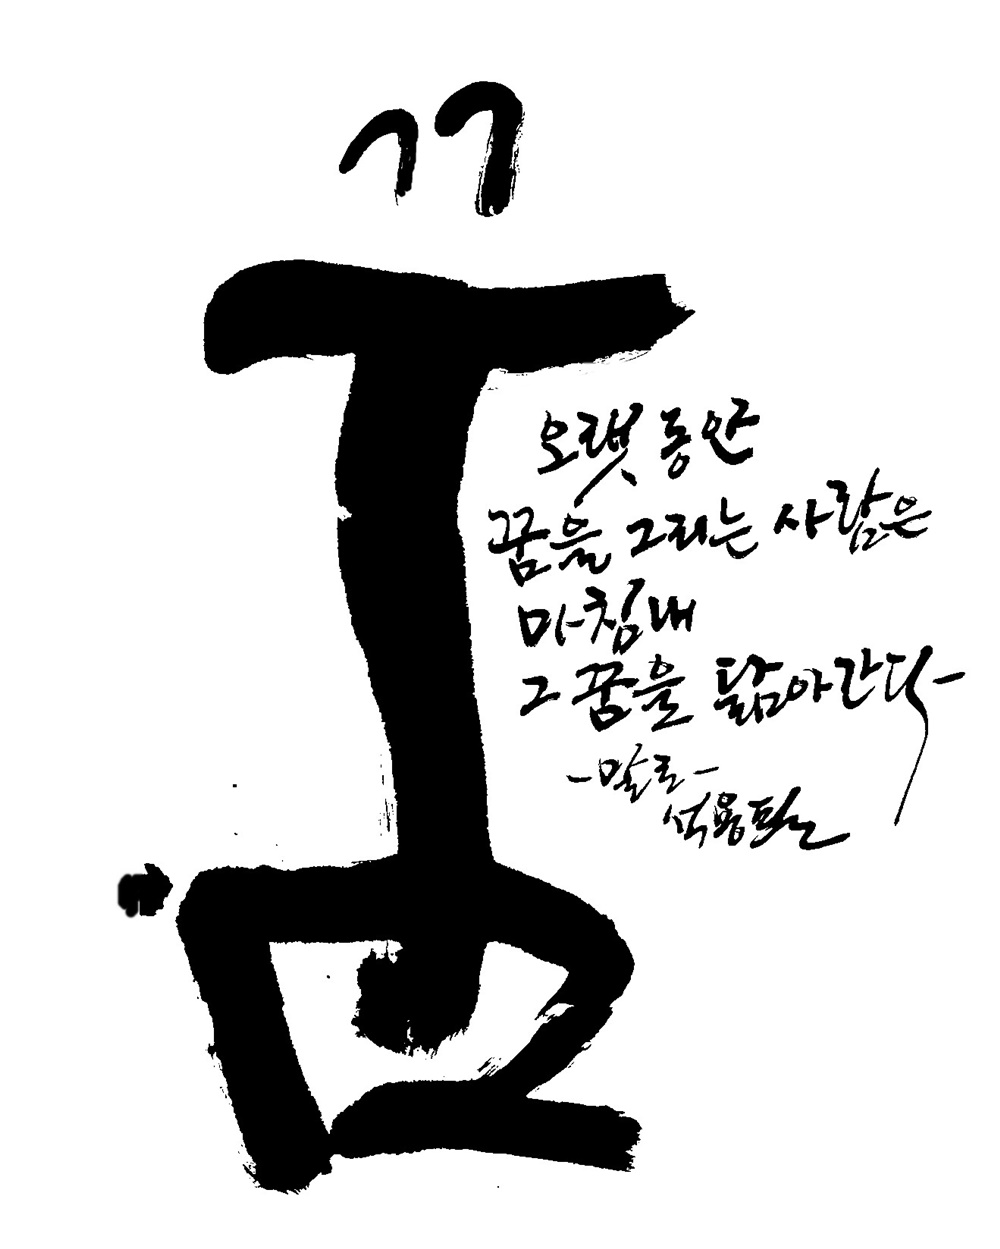 꿈
오랫동안
꿈을 그리는 사람은
마침내
그 꿈을 닮아간다
-말로-
석용필